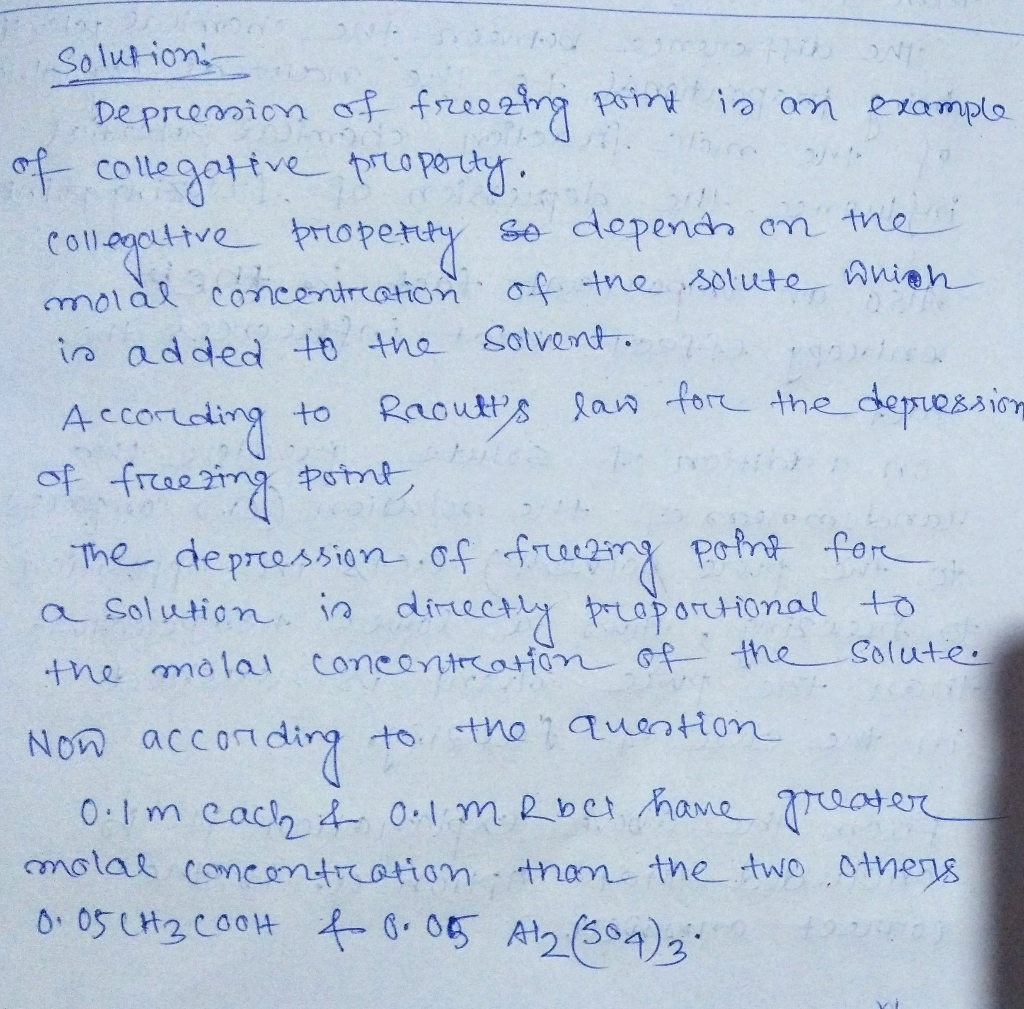 Solution:-
Depression of freezing point is an example
of collegative property.
collegative property so depends on the
molal concentration of the solute which
is added to the solvent.
According to Raoult's law for the depression
of freezing point,
The depression of freezing point for
a solution is directly proportional to
the molal concentration of the solute.
Now according to the question
0.1 m CaCl2 & 0.1 m RbCl have greater
molal concentration than the two others
0.05 CH3COOH & 0.05 Al2(SO4)3.